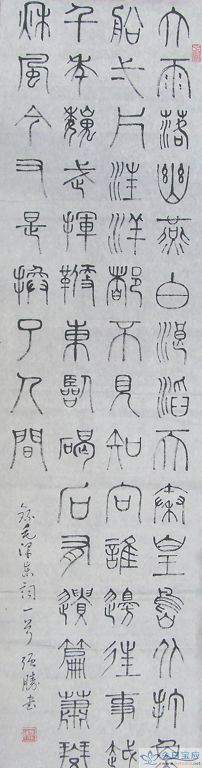 大雨落幽燕白浪滔天秦皇島外打魚
船弌片汪洋都不見知向誰邊往事越
千年魏武揮鞭東臨碣石有遺篇蕭瑟
秋風今又是換了人間
錄毛澤東詞一首 强勝書